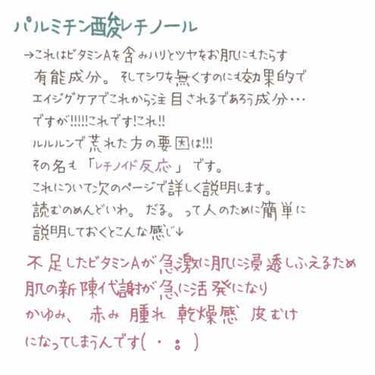 パルミチン酸レチノール
→これはビタミンAを含みハリとツヤをお肌にもたらす
有能成分。そしてシワを無くすのにも効果的で
エイジグケアでこれから注目されるであろう成分…
ですが!!!!!これです!これ!!
ルルルンで荒れた方の要因は!!!
その名も「レチノイド反応」です。
これについて次のページで詳しく説明します。
読むのめんどいわ。だる。って人のために簡単に
説明しておくとこんな感じ↓
不足したビタミンAが急激に肌に浸透しふえるため
肌の新陳代謝が急に活発になり
かゆみ、赤み 腫れ 乾燥感 皮むけ
になってしまうんです(・:)